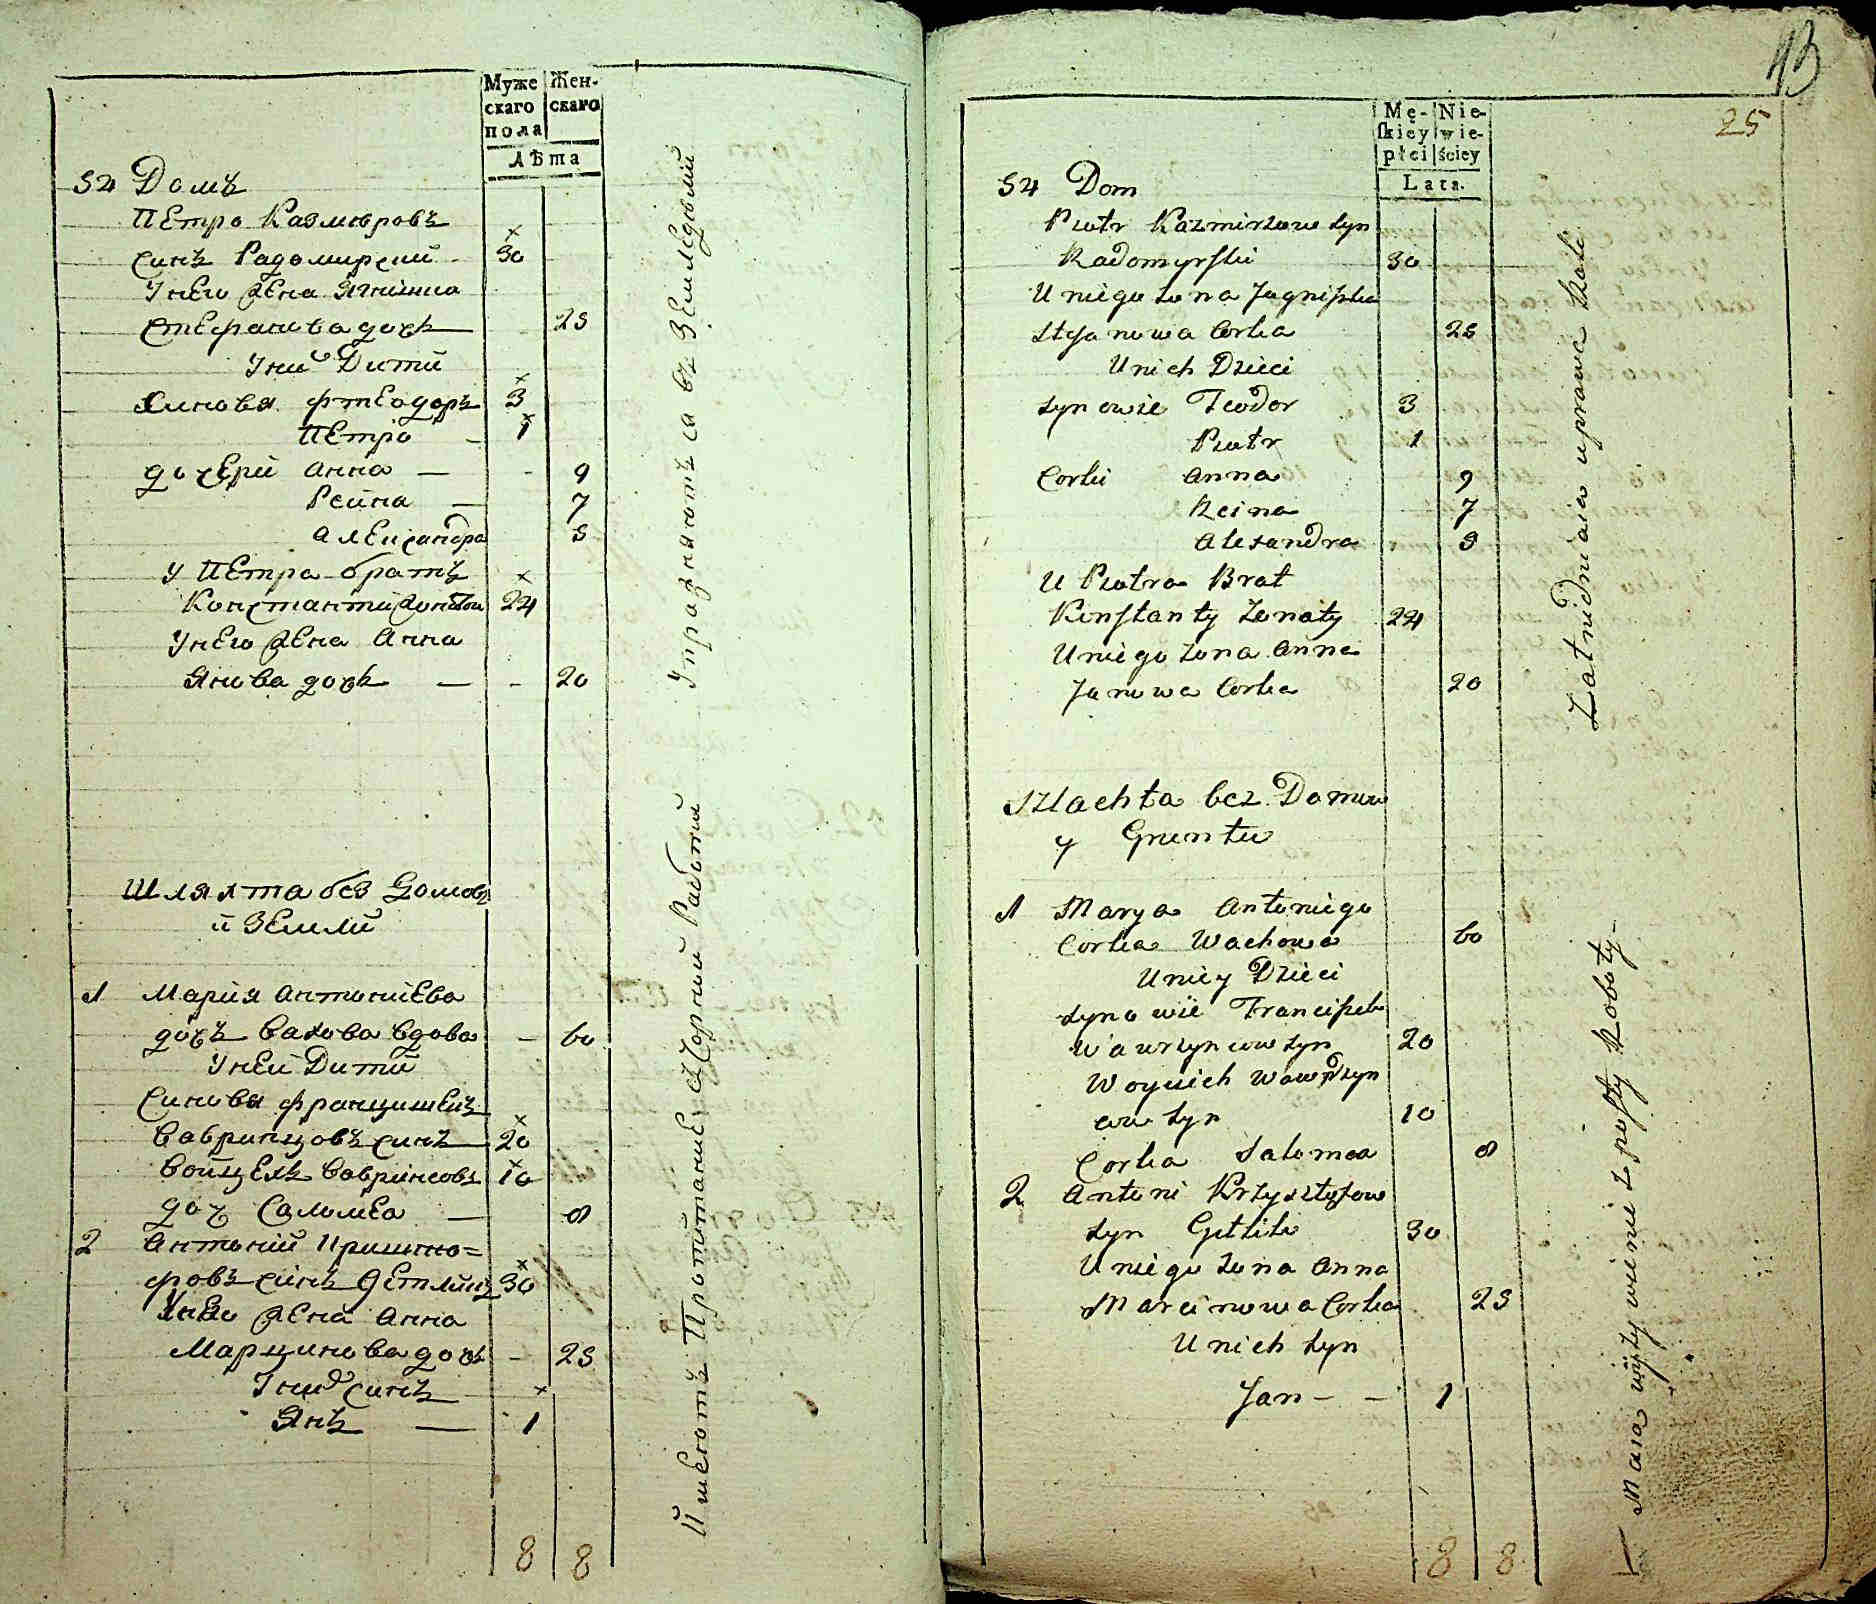 Муже
скаго
пола
Жен-
скаго
Лѣта
54 Домъ
Петро Казмѣровъ
синъ Радомирский 30
У него жена Ягнишка
Стефанова дочь 25
У них Дити
Синовя Фтеодоръ 3
Петро 1
дочери Анна 9
Реина 7
Александра 5
У Петра братъ
Константий 24
У него жена Анна
Янова дочь 20
Шляхта без домовъ
и Земли
1 Мария Антониева
дочъ Вахова вдова 60
У ней Дити
Синовя Францишекъ
Вавринцовъ синъ 20
Войцехъ Вавринсовъ 10
доч Саломеа 8
2 Антоний Криштно=
фовъ синъ Гетлинъ 30
У него жена Анна
Марцинова дочь 25
У них синъ
Янъ 1
8 8
Упразняются в Земледелий
Имеютъ Пропитание с Чорний Работий
13
25
Mę-
skiey
płci
Nie-
wie-
ściey
Lata.
54 Dom
Piotr Kazmirzow syn
Radomyrski 30
U niego zona Jagniszka
Stefanowa Corka 25
U nich Dzieci
Synowie Teodor 3
Piotr 1
Corki Anna 9
Reina 7
Alexandra 5
U Piotra Brat
Konstanty Zonaty 24
U niego zona Anna
Janowa Corka 20
Szlachta bez Domow
y Gruntu
1 Marya Antoniego
Corka Wachowa 60
U niey Dzieci
Synowie Franciszek
Wawrzyncow syn 20
Woyciech Wawrzyn
cow syn 10
Corka Salomea 8
2 Antoni Krzysztofow
syn Getlik 30
U niego zona Anna
Marcinowa Corka 25
U nich syn
Jan - - 1
8 8
Zatrudniaia uprawa Roli
Maia wyżywienie z prosty Roboty-